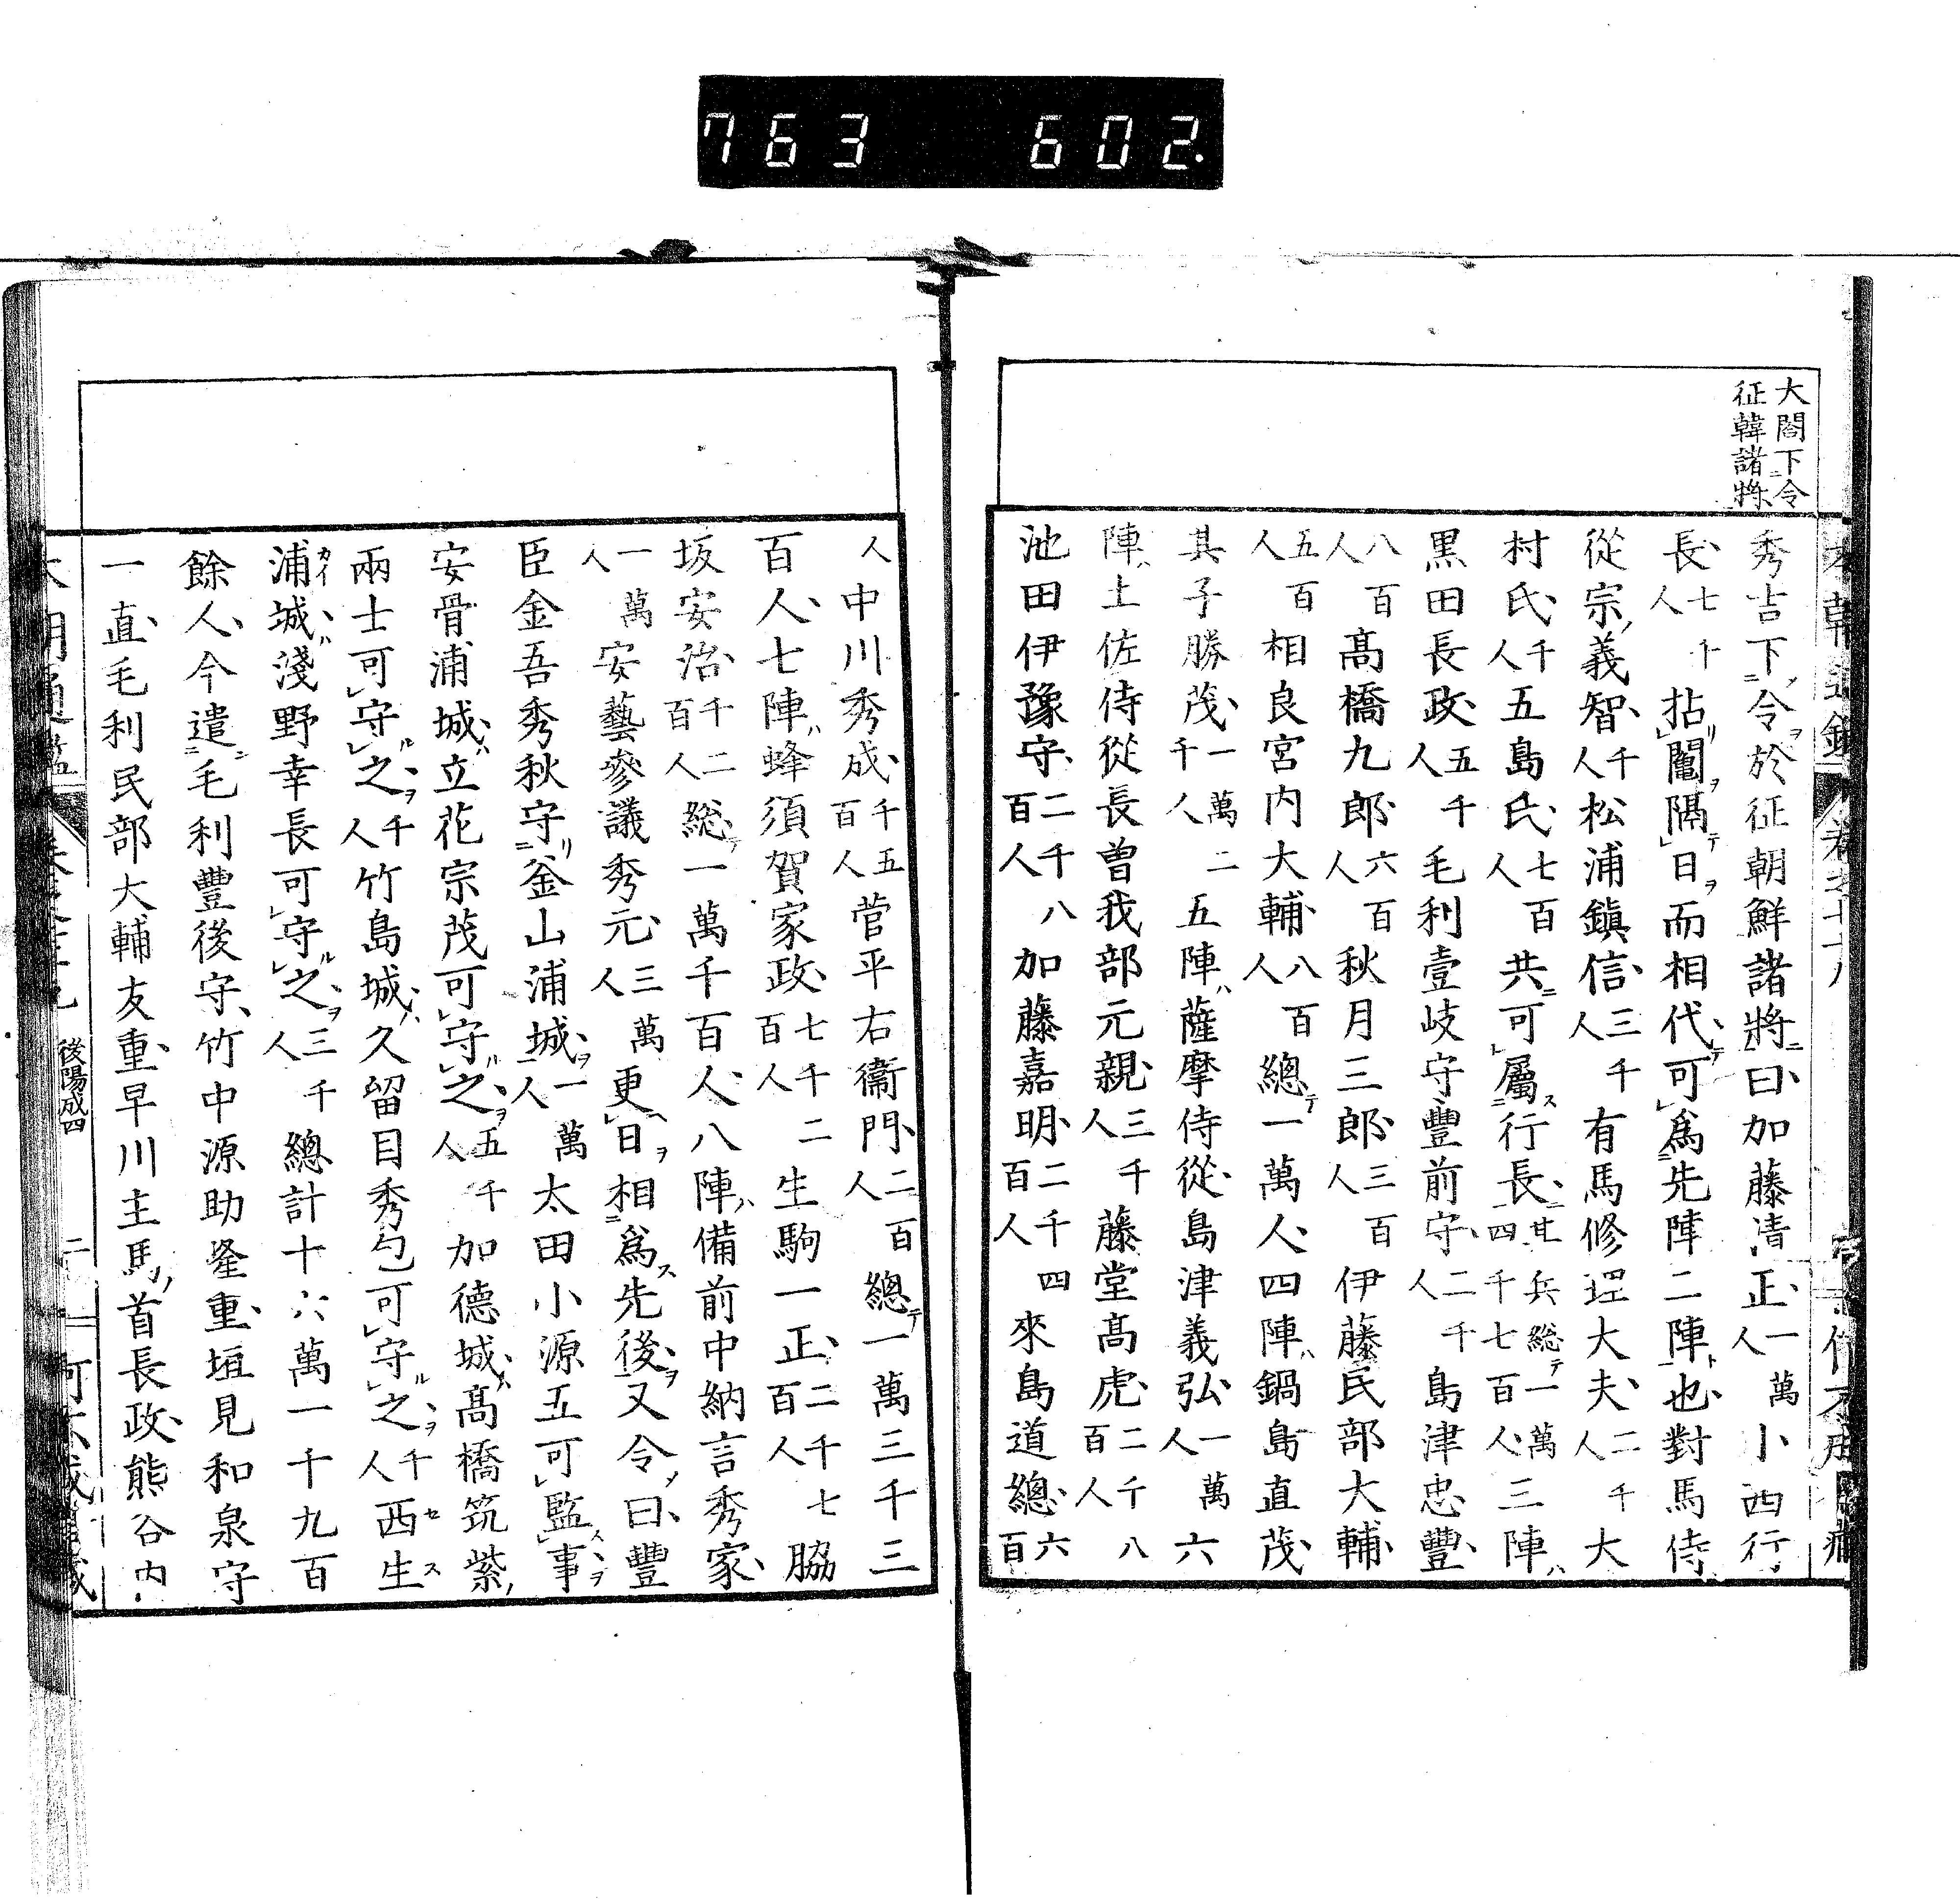 763 602
大閤下令
征韓諸將
秀吉下令於征朝鮮諸將曰加藤清正一萬人小西行
長七千人拈鬮隔日而相代可爲先陣二陣也對馬侍
從宗義智千人松浦鎭信三千人有馬修理大夫二千人大
村氏千人五島氏七百人共可屬行長其兵総テ一萬四千七百人三陣ハ
黒田長政五千人毛利壹岐守豐前守二千人島津忠豐
八百人髙橋九郎六百人秋月三郎三百人伊藤民部大輔
五百人相良宮内大輔八百人總テ一萬人四陣ハ鍋島直茂
其子勝茂一萬二千人五陣ハ薩摩侍從島津義弘一萬人六
陣ハ土佐侍從長曾我部元親三千人藤堂髙虎二千八百人
池田伊豫守二千八百人加藤嘉明二千四百人來島道總六百
人中川秀成千五百人菅平右衞門二百人總テ一萬三千三
百人七陣ハ蜂須賀家政七千二百人生駒一正二千七百人脇
坂安治千二百人総テ一萬千百人八陣ハ備前中納言秀家
一萬人安藝參議秀元三萬人更日相爲先後又令曰豐
臣金吾秀秋守釜山浦城一萬人太田小源五可監事
安骨浦城ハ立花宗茂可守之五千人加德城ハ髙橋筑紫
兩士可守之千人竹島城ハ久留目秀包可守之千人西生
浦城ハ淺野幸長可守之三千人總計十六萬一千九百
餘人今遣毛利豐後守竹中源助隆重垣見和泉守
一直毛利民部大輔友重早川主馬首長政熊谷内
後陽成四